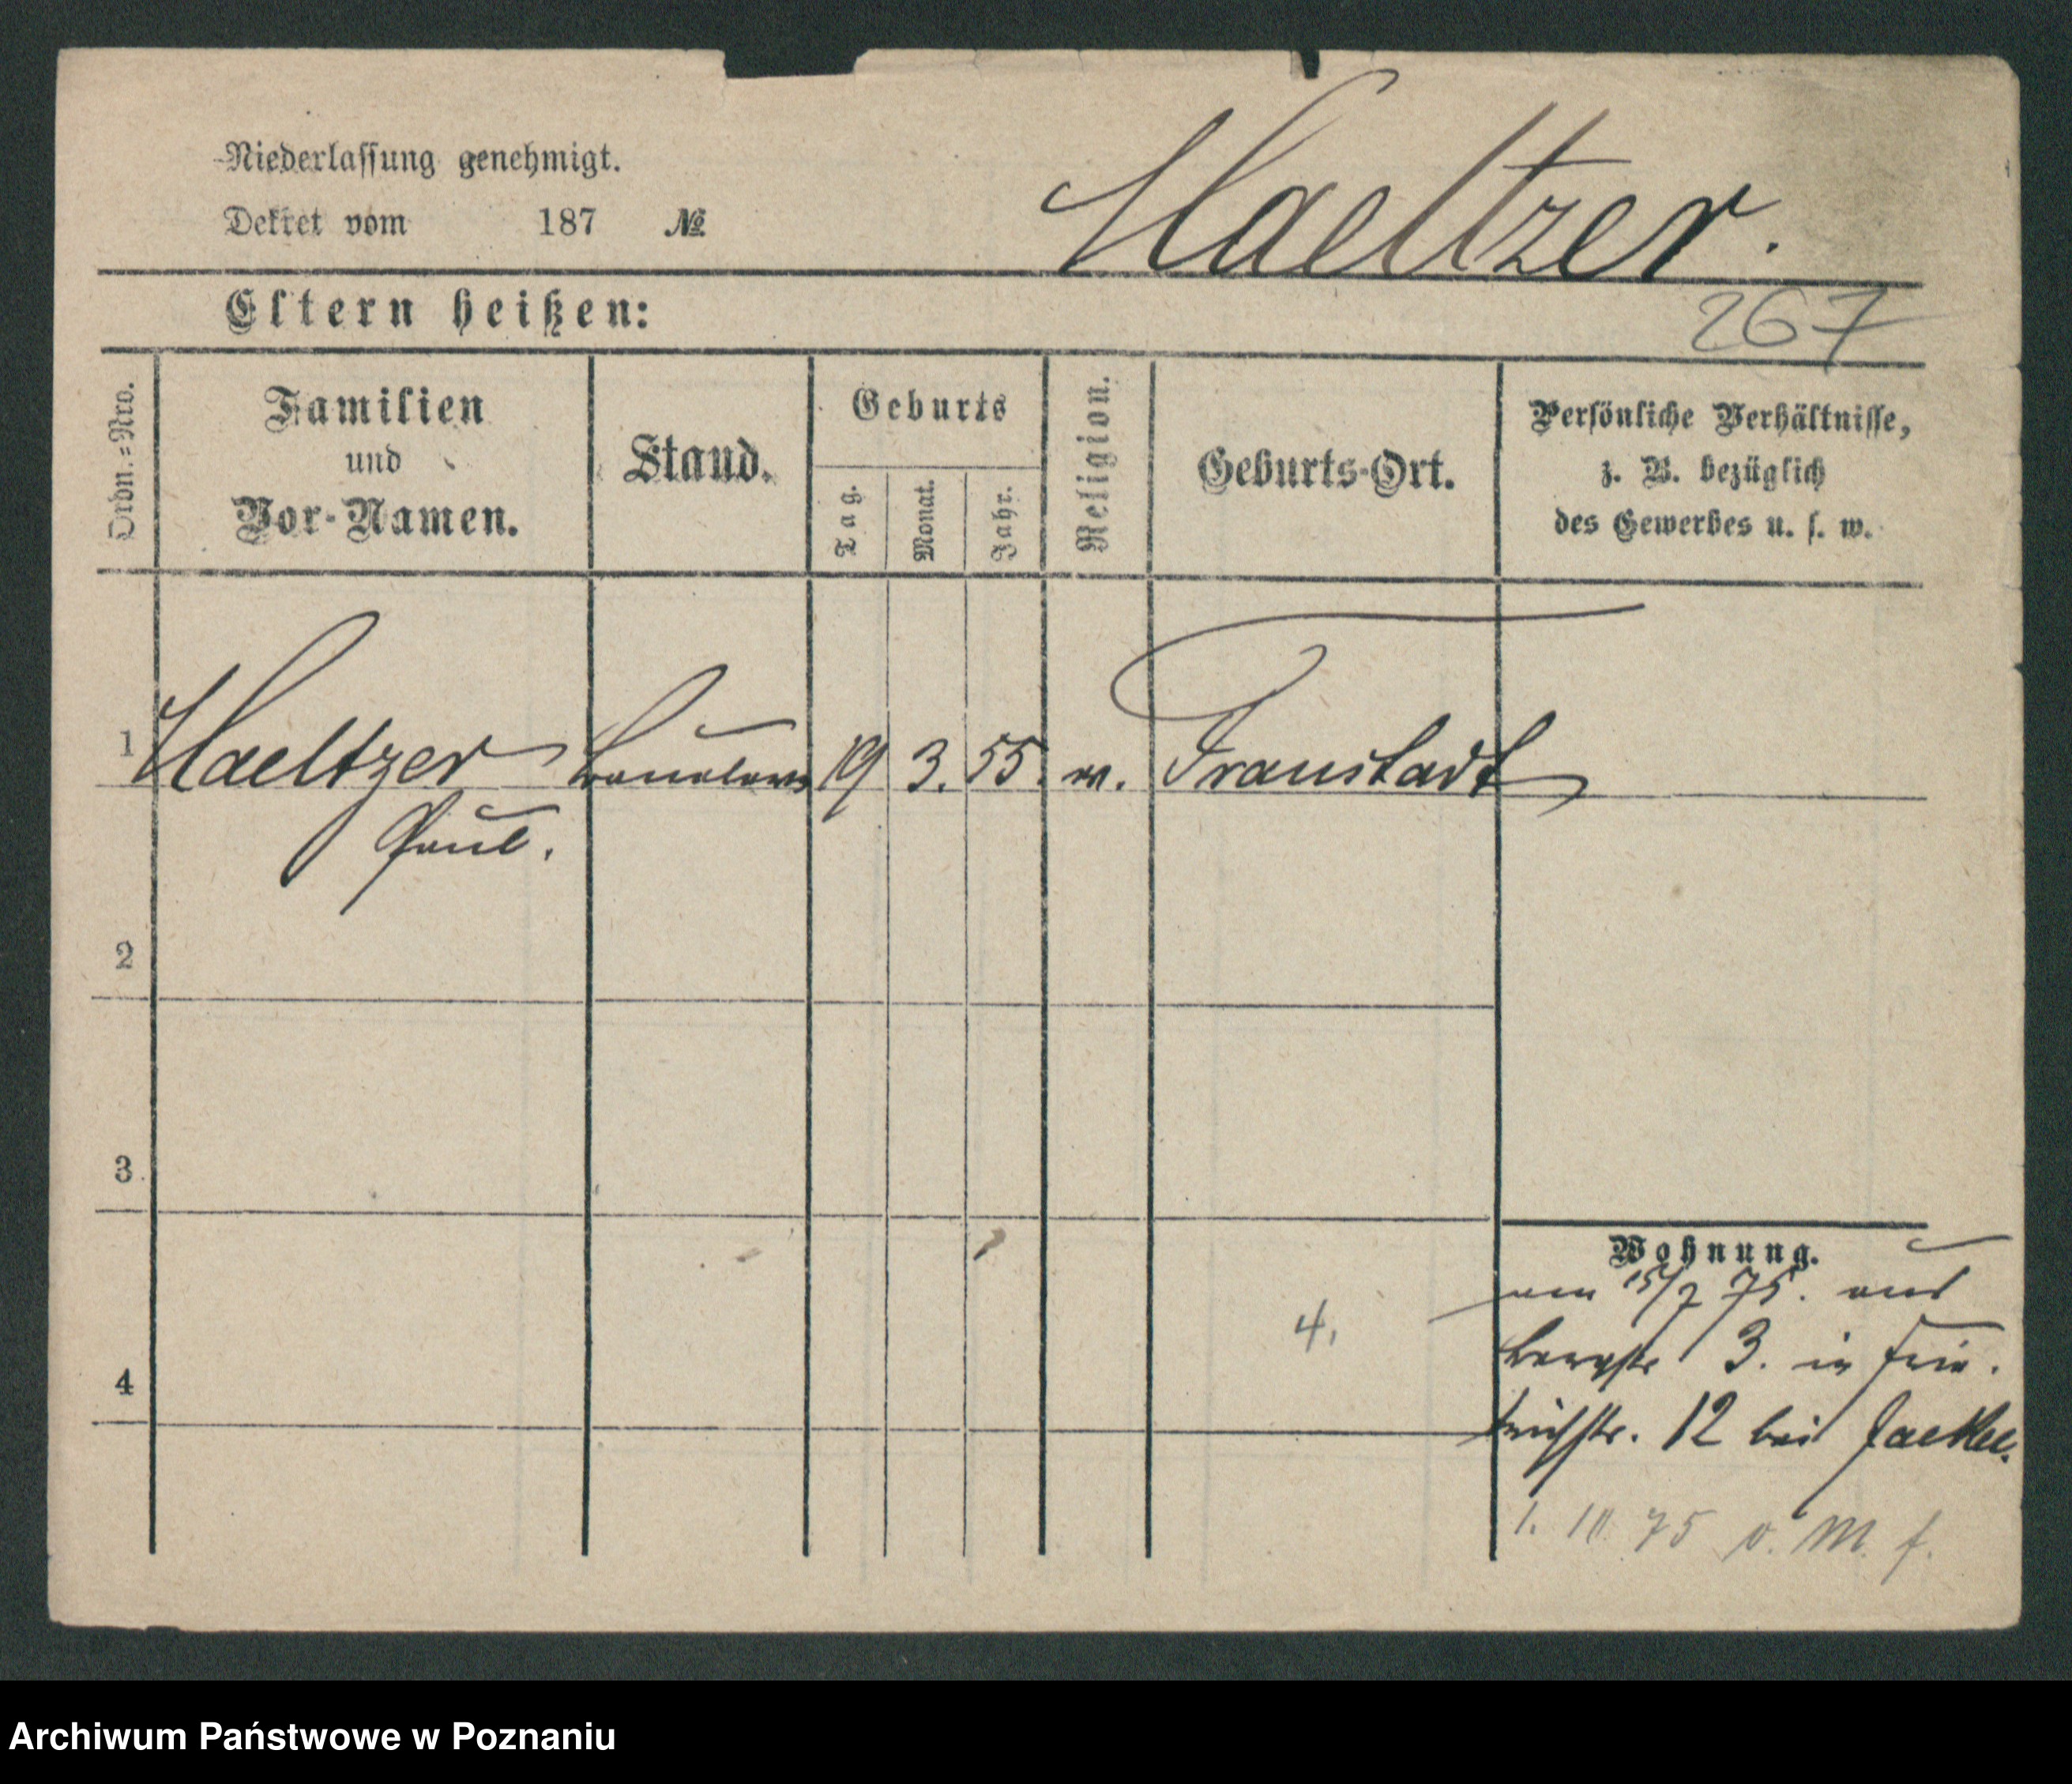 Niederlassung genehmigt.
Dekret vom 187 №
Haeltzer.
Eltern heißen:
267
Ordn.=Nro.
Familien
und
Vor-Namen.
Stand.
Geburts
Tag.
Monat.
Jahr.
Religion.
Geburts-Ort.
Persönliche Verhältnisse,
z. B. bezüglich
des Gewerbes u. s. w.
1 Haeltzer 19 3. 55. Fraustadt
Paul.
2
3
Wohnung.
15/7 75. aus
4.
4
3. in Frie.
drichstr. 12 bei Jaekel.
1. 10. 75 v. M. f.
Archiwum Państwowe w Poznaniu